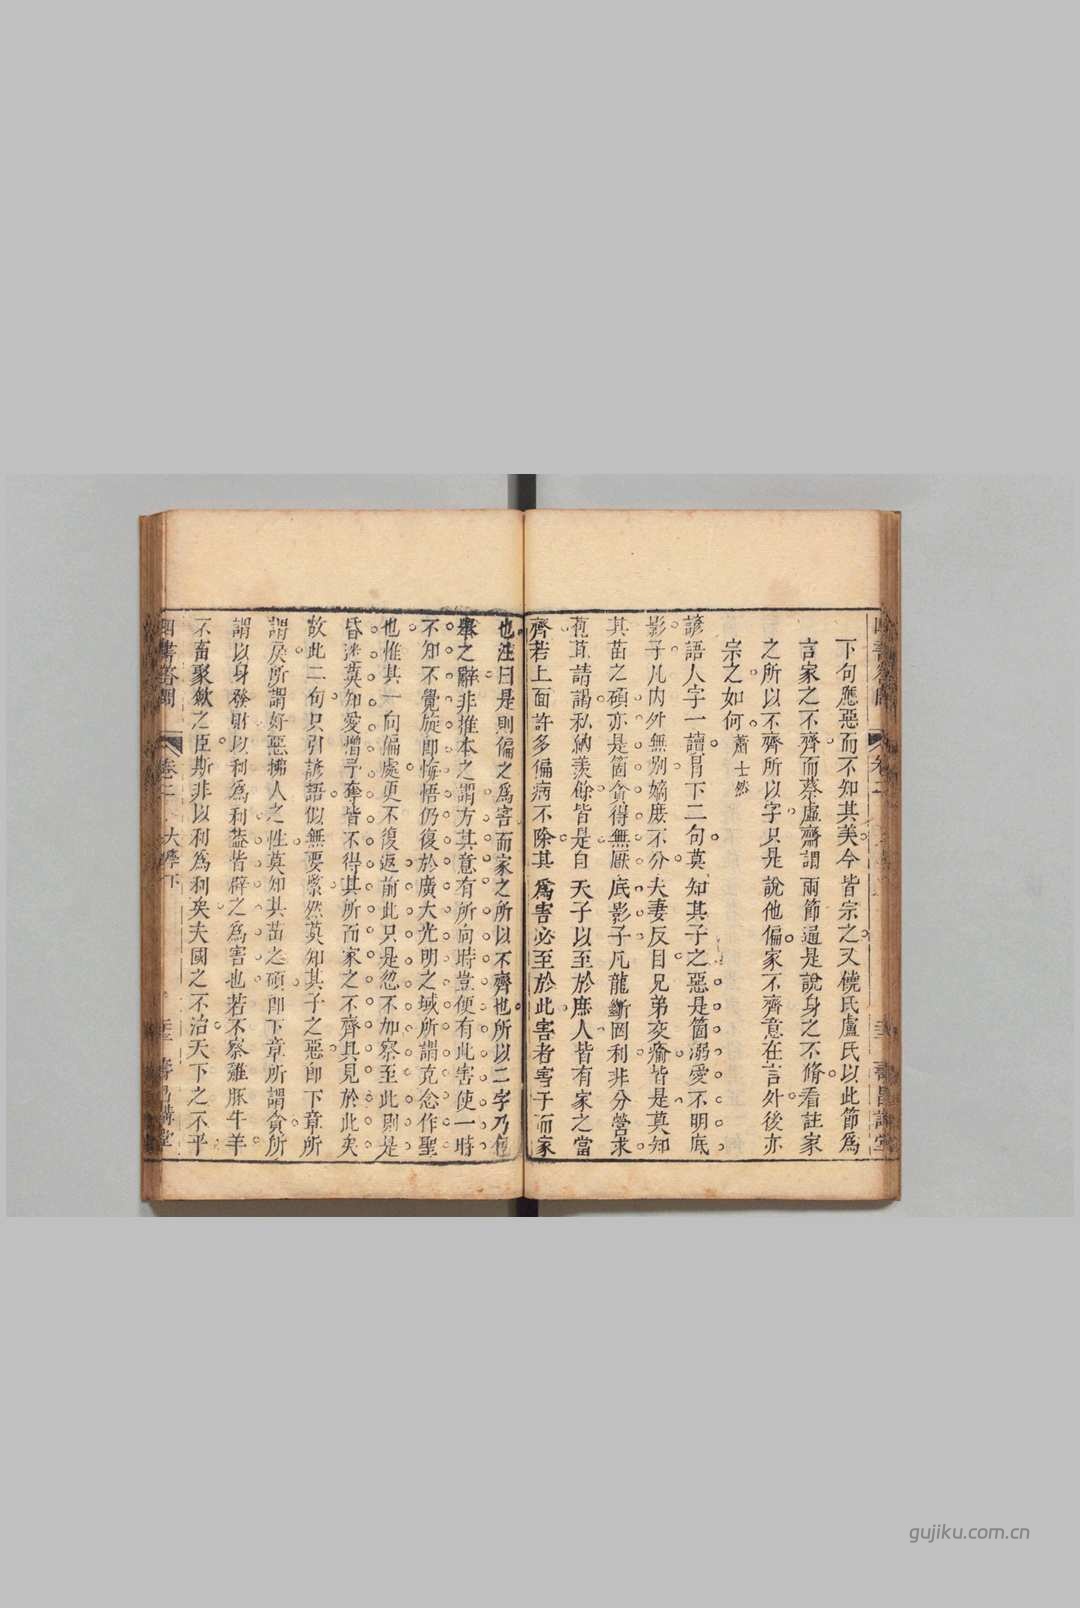 下句應惡而不知其美今皆宗之又饒氏盧氏以此節爲
言家之不齊而蔡虛齋謂兩節逼是說身之不脩看註家
之所以不齊所以字只是說他偏家不齊意在言外後亦
宗之如何 蕭士然
諺語人字一讀冒下二句莫知其子之惡是箇溺愛不明底
影子凡內外無別嫡庶不分夫妻反目兄弟交瘉皆是莫知
其苗之碩亦是箇貪得無厭底影子凡龍斷罔利非分營求
苞苴請謁私納羨餘皆是自天子以至於庶人皆有家之當
齊若上面許多偏病不除其爲害必至於此害者害于而家
也注曰是則偏之爲害而家之所以不齊也所以二字乃包
舉之辭非推本之謂方其意有所向時豈便有此害使一時
不知不覺旋卽悔悟仍復於廣大光明之域所謂克念作聖
也惟其一向偏處更不復返前此只是忽不加察至此則是
昏迷莫知愛憎予奪皆不得其所而家之不齊具見於此矣
故此二句只引諺語似無要緊然莫知其子之惡卽下章所
謂戾所謂好惡拂人之性莫知其苗之碩卽下章所謂貪所
謂以身發財以利爲利葢皆辟之爲害也若不察雞豚牛羊
不畜聚斂之臣斯非以利爲利矣夫國之不治天下之不平
四書答問 卷二 大學下